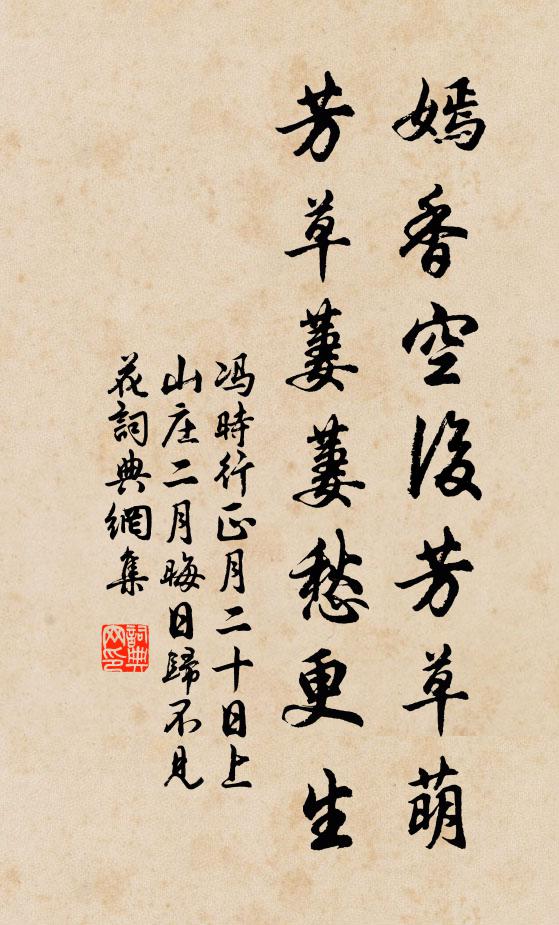 嫣香空後芳草萌
芳草萋萋愁更生
冯時行正月二十日上
山庄二月晦日歸不見
花詞典網集
詞典
网印